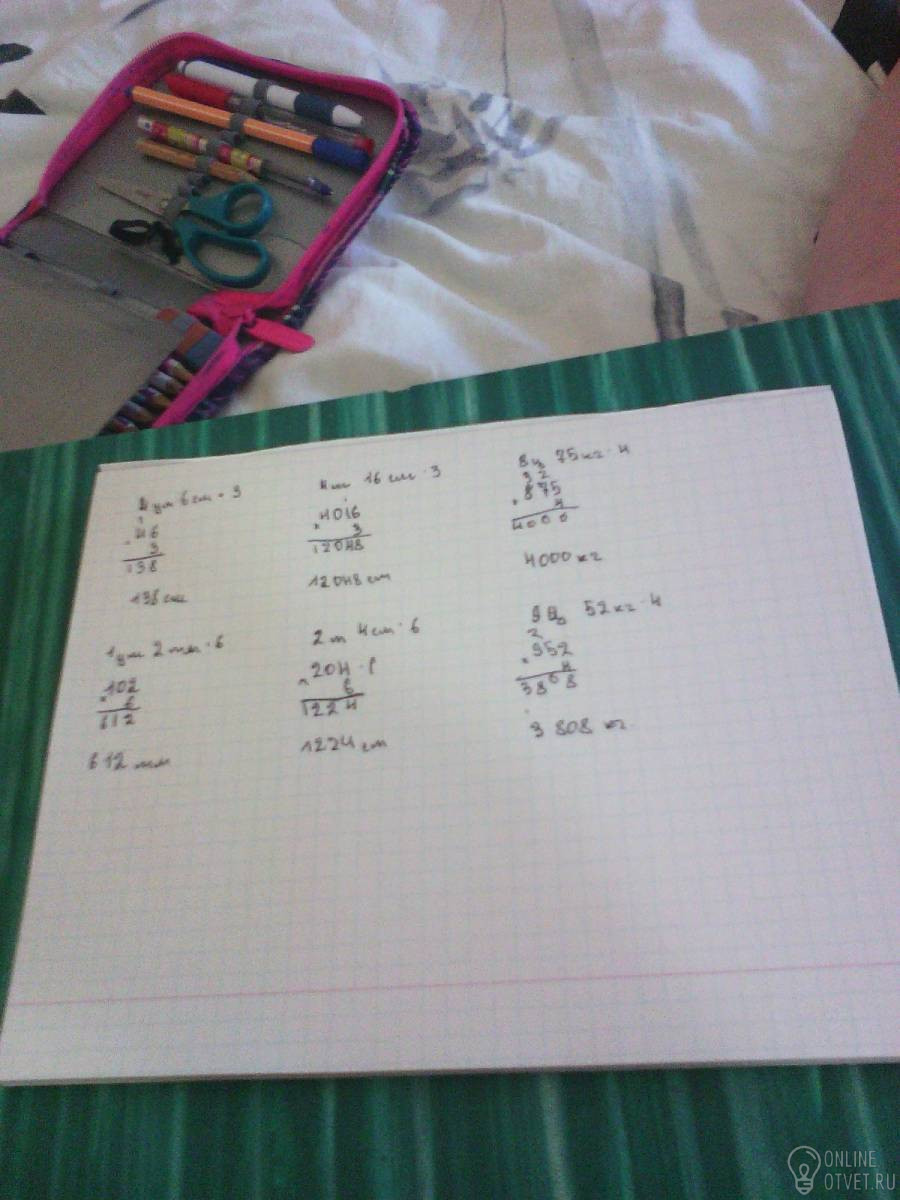 4 дм 6 см · 3
46
3
138
138 см
4 м 16 см · 3
1
4016
× 3
12048
12048 см
8 ц 75 кг · 4
32
× 875
4
4000
4000 кг
1 дм 2 мм · 6
× 102
6
612
612 мм
2 m 4 см · 6
× 204
6
1224
1224 см
9 ц 52 кг · 4
2
× 952
4
3808
3 808 кг
ONLINE
OTVET.RU